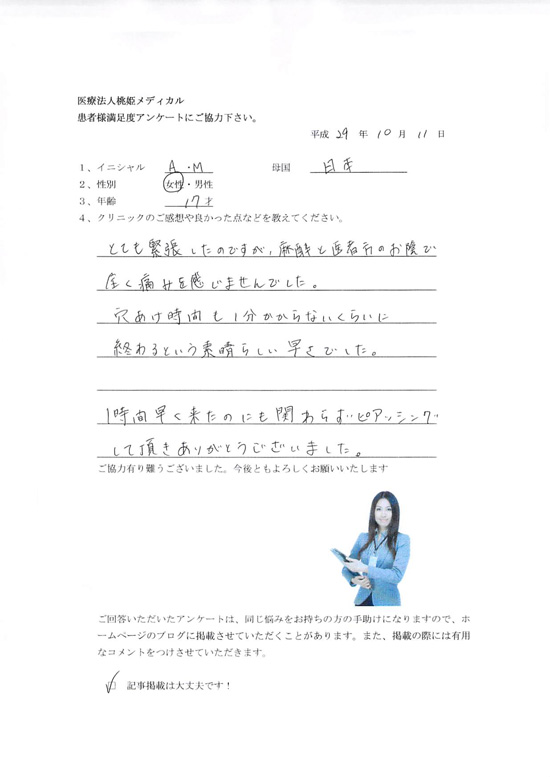 医療法人桃姫メディカル
患者様満足度アンケートにご協力下さい。
平成 29 年 10 月 11 日
1、イニシャル A・M 母国 日本
2、性別 女性・男性
3、年齢 17才
4、クリニックのご感想や良かった点などを教えてください。
とても緊張したのですが、麻酔と医者方のお陰で
全く痛みを感じませんでした。
穴あけ時間も1分かからないくらいに
終わるという素晴らしい早さでした。
1時間早く来たのにも関わらずピアッシング
して頂きありがとうございました。
ご協力有り難うございました。今後ともよろしくお願いいたします
ご回答いただいたアンケートは、同じ悩みをお持ちの方の手助けになりますので、ホ
ームページのブログに掲載させていただくことがあります。また、掲載の際には有用
なコメントをつけさせていただきます。
記事掲載は大丈夫です！